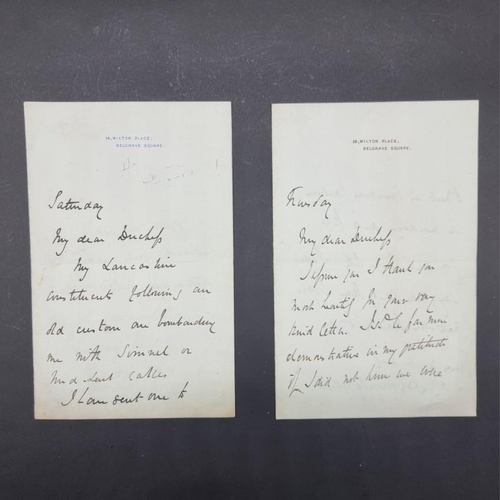 18, WILTON PLACE,
BELGRAVE SQUARE.
Saturday
My dear Duchess
My Lancashire
constituents following an
old custom are bombarding
me with Simnel or
Mid-Lent cakes
I have sent one to
18, WILTON PLACE,
BELGRAVE SQUARE.
Tuesday
My dear Duchess
I assure you I thank you
most heartily for your very
kind letter. I shd be far more
demonstrative in my gratitude
if I did not know we were